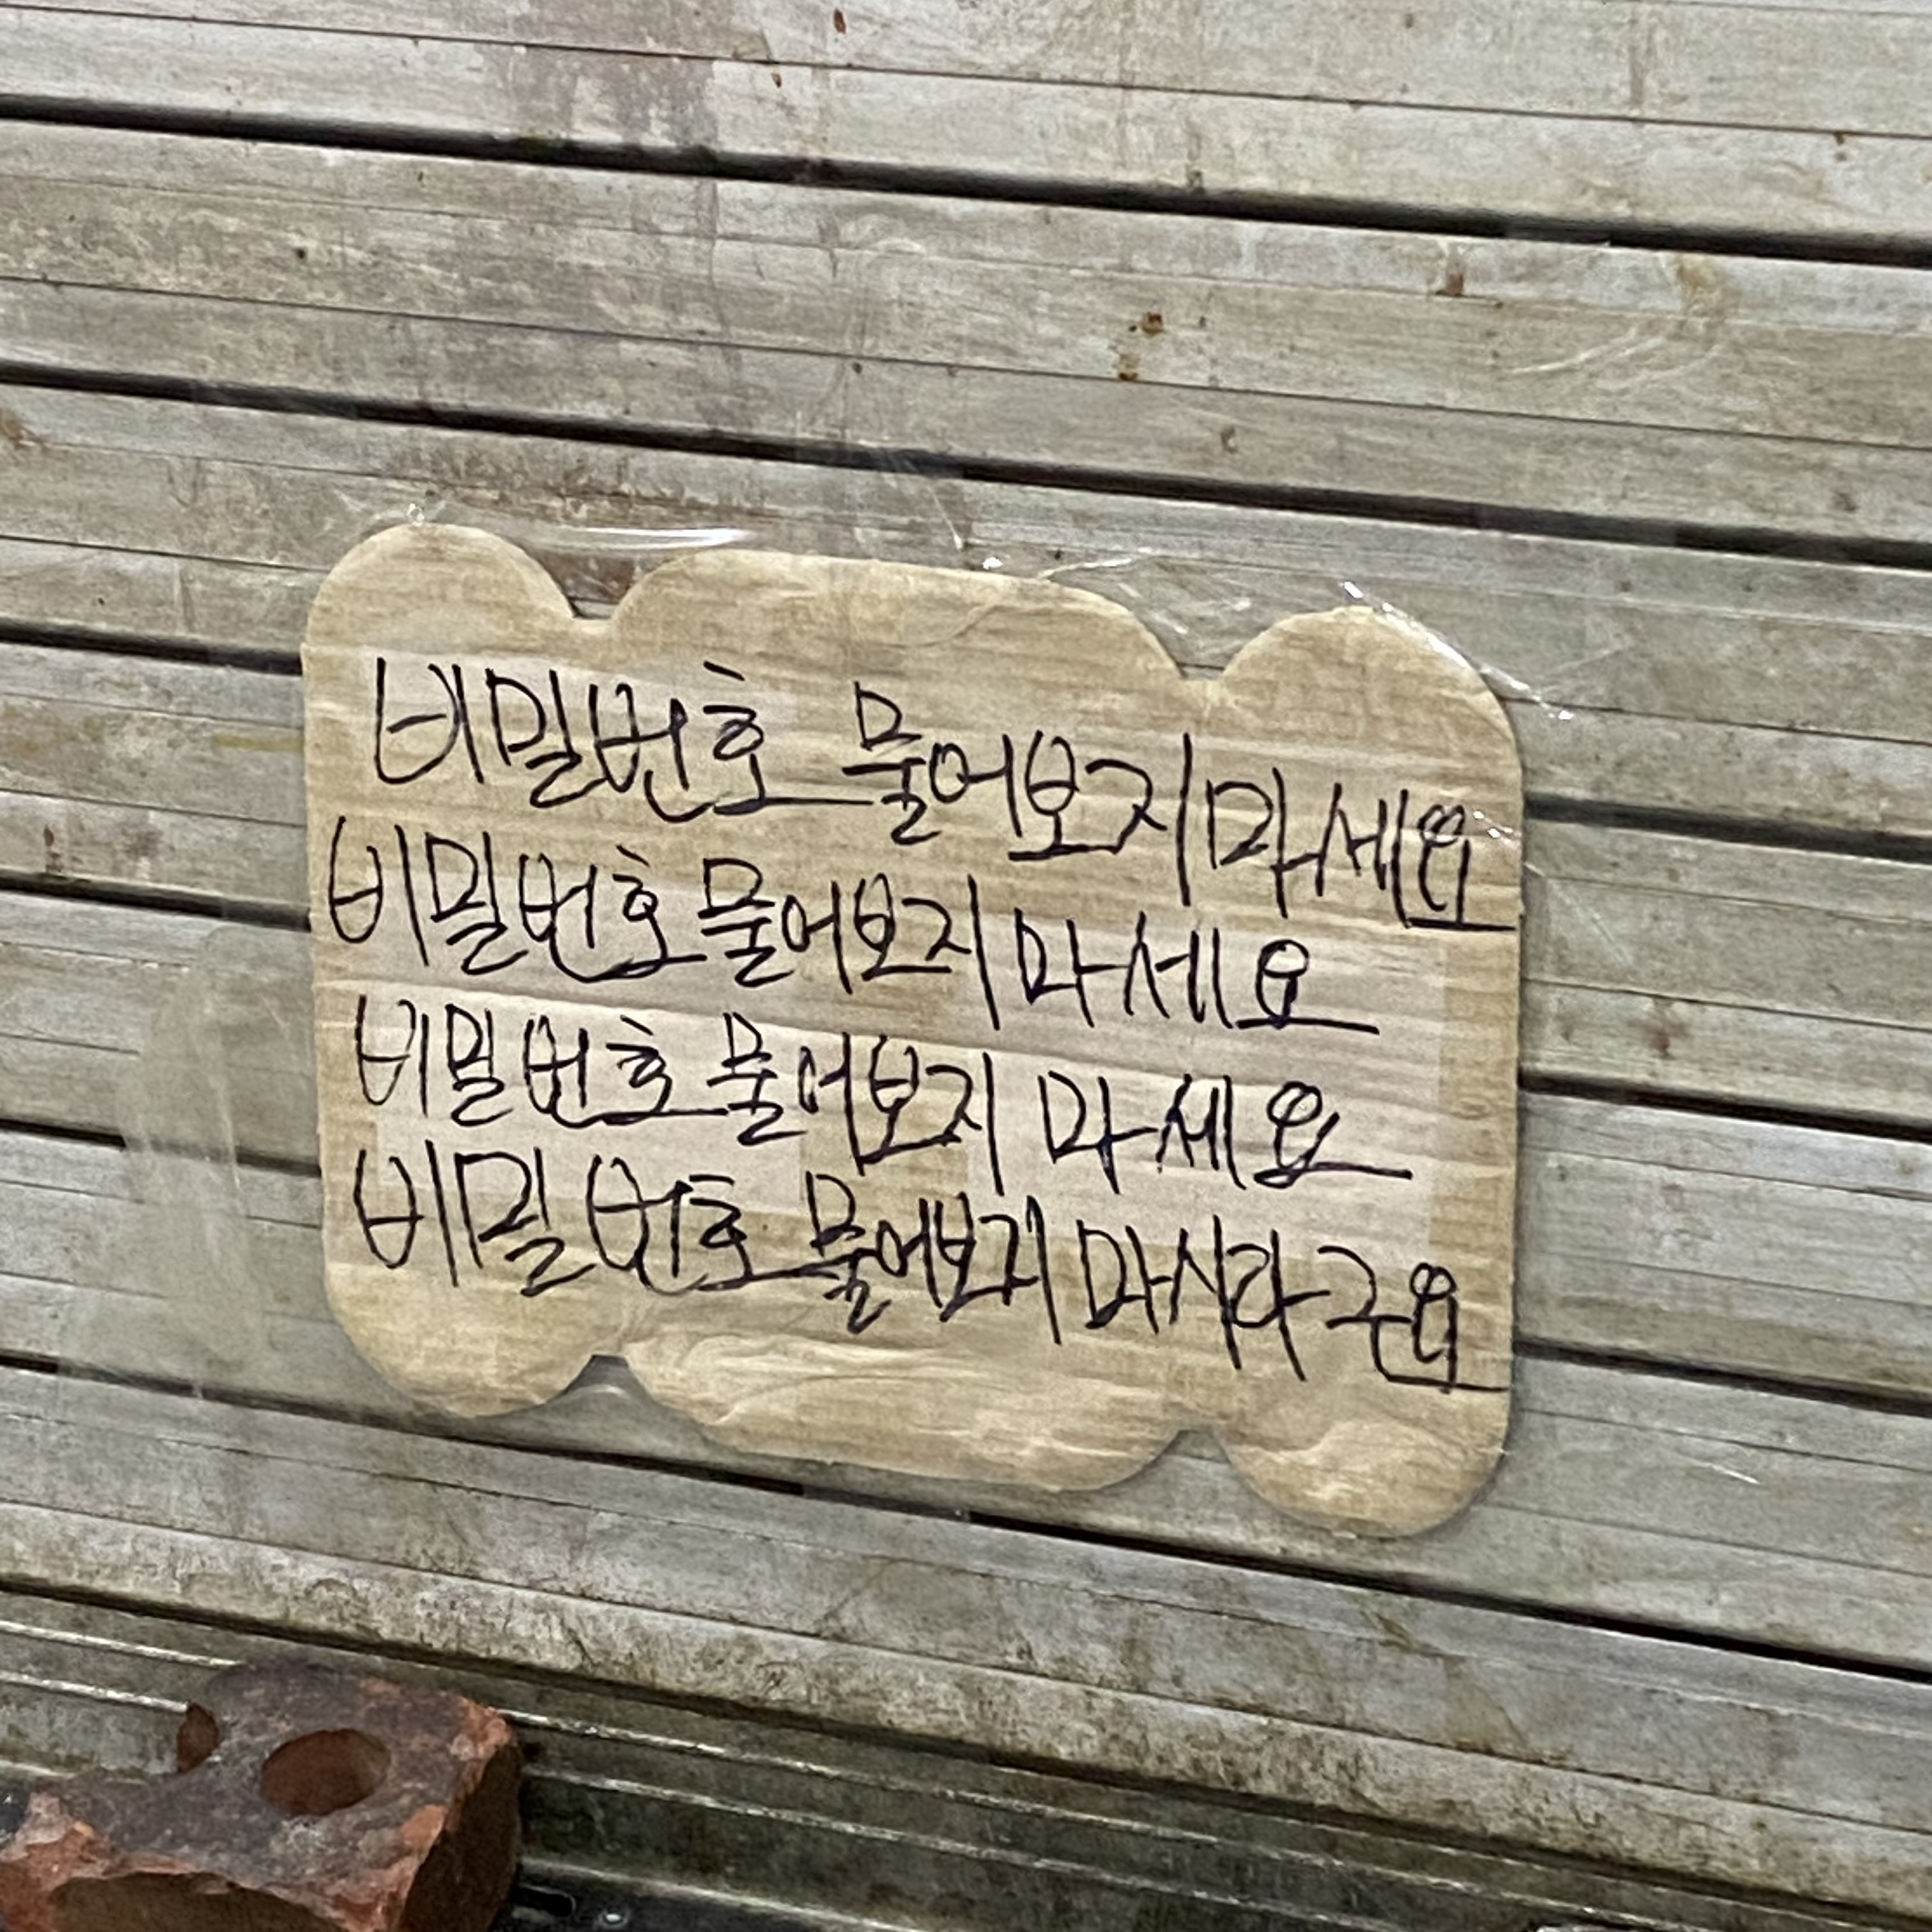 비밀번호 물어보지 마세요
비밀번호 물어보지 마세요
비밀번호 물어보지 마세요
비밀번호 물어보지 마시라구요